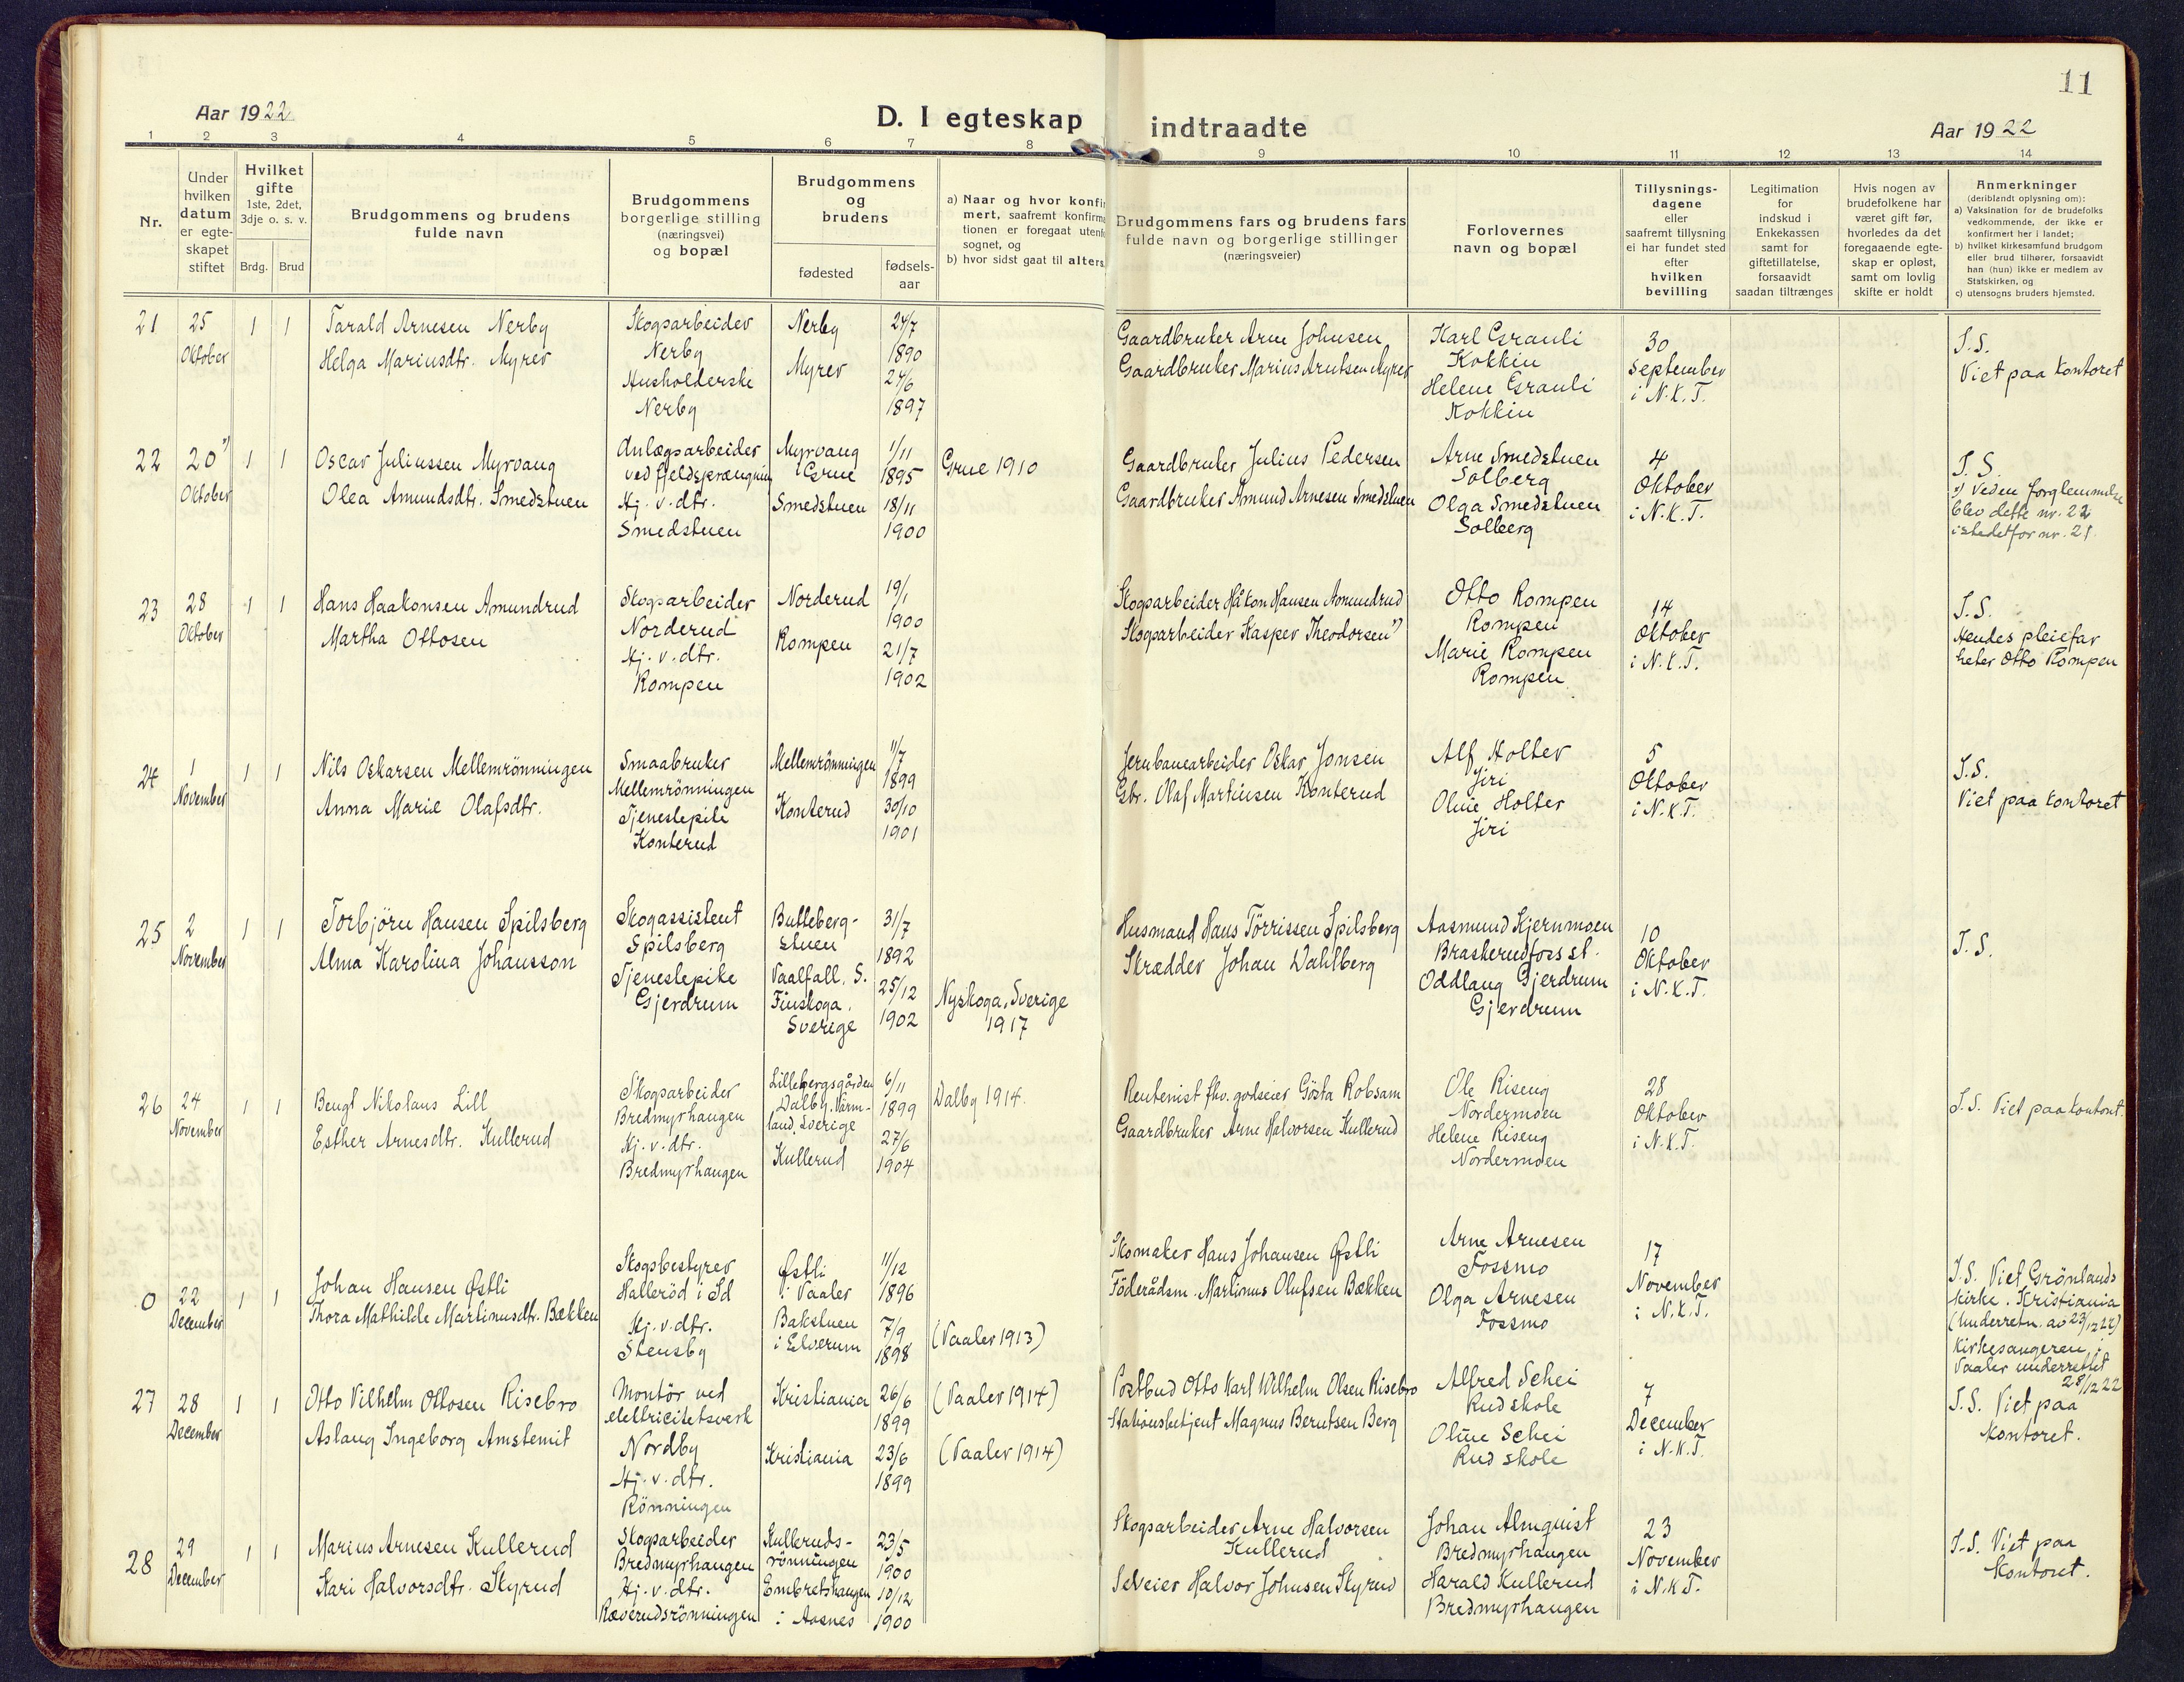 11
Aar 1922
D. I egteskap indtraadte
Aar 1922
1 2 3 4 5 6 7 8 9 10 11 12 13 14
Nr.
Under hvilken datum er egteskapet stiftet
Hvilket gifte 1ste, 2det, 3dje o. s. v.
Brdg. Brud
Brudgommens og brudens fulde navn
Brudgommens borgerlige stilling (næringsvei) og bopæl
Brudgommens og brudens
fødested
fødsels-aar
a) Naar og hvor konfir
mert, saafremt konfirma
tionen er foregaat utenfo
sognet, og
b) hvor sidst gaat til alters.
Brudgommens fars og brudens fars
fulde navn og borgerlige stillinger
(næringsveier)
Forlovernes
navn og bopæl
Tillysnings-
dagene
eller
saafremt tillysning
ei har fundet sted
efter
hvilken
bevilling
Legitimation
for
indskud i
Enkekassen
samt for
giftetillatelse,
forsaavidt
saadan tiltrænges
Hvis nogen av
brudefolkene har
været gift før,
hvorledes da det
foregaaende egte-
skap er opløst,
samt om lovlig
skifte er holdt
Anmerkninger
(deriblandt oplysning om):
a) Vaksination for de brudefolks
vedkommende, der ikke er
konfirmert her i landet;
b) hvilket kirkesamfund brudgom
eller brud tilhører, forsaavidt
han (hun) ikke er medlem av
Statskirken, og
c) utensogns bruders hjemsted.
21
25
Oktober
1 1
Tarald Arnesen Nerby
Helga Mariusdtr. Myrer
Skogsarbeider
Nerby
Husholderske
Nerby
Nerby
Myrer
24/7
1890
24/6
1897
Gaardbruker Arne Johnsen
Gaardbruker Marius Arntsen Myrer
Karl Grauli
Kokkin
Helene Grauli
Kokkin
30
September
i N.K.T.
I.S.
Viet paa kontoret
22
20 *)
Oktober
1 1
Oscar Juliussen Myrvang
Olea Amundsdtr. Smedstuen
Anlægsarbeider
ved fjeldsprængning
Hj. v. dtr.
Smedstuen
Myrvang
i Grue
Smedstuen
1/11
1895
18/11
1900
Grue 1910
Gaardbruker Julius Pedersen
Gaardbruker Amund Arnesen Smedstuen
Arne Smedstuen
Solberg
Olga Smedstuen
Solberg
4
Oktober
i N.K.T.
I.S.
*) Ved en forglemmelse
blev dette nr. 22
istedetfor nr. 21.
23
28
Oktober
1 1
Hans Haakonsen Amundrud
Martha Ottosen
Skogsarbeider
Norderud
Hj. v. dtr.
Rompen
Norderud
Rompen
19/1
1900
21/7
1902
Skogsarbeider Håkon Hansen Amundrud
Skogsarbeider Kasper Theodorsen *)
Otto Rompen
Rompen
Marie Rompen
Rompen
14
Oktober
i N.K.T.
I.S.
Hendes pleiefar
heter Otto Rompen
24
1
November
1 1
Nils Oskarsen Mellemrönningen
Anna Marie Olafsdtr.
Smaabruker
Mellemrönningen
Tjenestepike
Konterud
Mellemrönningen
Konterud
11/7
1899
30/10
1901
Jernbanearbeider Oskar Jonsen
Gbr. Olaf Martinsen Konterud
Alf Holter
Jiri
Oline Holter
Jiri
5
Oktober
i N.K.T.
I.S.
Viet paa kontoret
25
2
November
1 1
Torbjörn Hansen Spilsberg
Alma Karolina Johansson
Skogassistent
Spilsberg
Tjenestepike
Gjerdrum
Bulleberg-
stuen
Vaalfall, S.
Finskoga,
Sverige
31/7
1892
25/12
1902
Nyskoga, Sverige
1917
Husmand Hans Törrissen Spilsberg
Skrædder Johan Dahlberg
Aasmund Kjernmoen
Braskerudfoss st.
Oddlaug Gjerdrum
Gjerdrum
10
Oktober
i N.K.T.
I.S.
26
24
November
1 1
Bengt Nikolaus Lill
Esther Arnesdtr. Kullerud
Skogsarbeider
Bredmyrhaugen
Hj. v. dtr.
Bredmyrhaugen
Lillebergsgården
Dalby, Värm-
land, Sverige
Kullerud
6/11
1899
27/6
1904
Dalby 1914.
Rentenist fhv. godseier Gösta Robsam
Gaardbruker Arne Halvorsen Kullerud
Ole Riseng
Nordermoen
Helene Riseng
Nordermoen
28
Oktober
i N.K.T.
I.S. Viet paa kontoret.
0
22
December
1 1
Johan Hansen Østli
Thora Mathilde Martinusdtr. Bækken
Skogsbestyrer
Halleröd i Id
Hj. v. dtr.
Stensby
Østli
i Vaaler
Bakstuen
i Elverum
11/12
1896
7/9
1898
(Vaaler 1913)
Skomaker Hans Johansen Østli
Föderådsm. Martinus Olufsen Bækken
Arne Arnesen
Fossmo
Olga Arnesen
Fossmo
17
November
i N.K.T.
I.S. Viet Grönlands
kirke, Kristiania
(Underretn. av 23/12 22)
Kirkesangeren i
Vaaler underrettet
28/12 22
27
28
December
1 1
Otto Vilhelm Ottosen Risebro
Aslaug Ingeborg Amstemit
Montör ved
elektricitetsverk
Nordby
Hj. v. dtr.
Rönningen
Kristiania
Kristiania
26/6
1899
23/6
1899
(Vaaler 1914)
(Vaaler 1914)
Postbud Otto Karl Wilhelm Olsen Risebro
Stationsbetjent Magnus Berntsen Berg
Alfred Schei
Rud skole
Oline Schei
Rud skole
7
December
i N.K.T.
I.S. Viet paa
kontoret.
28
29
December
1 1
Marius Arnesen Kullerud
Kari Halvorsdtr. Skyrud
Skogsarbeider
Bredmyrhaugen
Hj. v. dtr.
Ræverudsrönningen
Kulleruds-
rönningen
Embretshaugen
i Aasnes
23/5
1900
10/12
1900
Skogsarbeider Arne Halvorsen
Kullerud
Selveier Halvor Johnsen Skyrud
Johan Almquist
Bredmyrhaugen
Harald Kullerud
Bredmyrhaugen
23
November
i N.K.T.
I.S. Viet paa
kontoret.